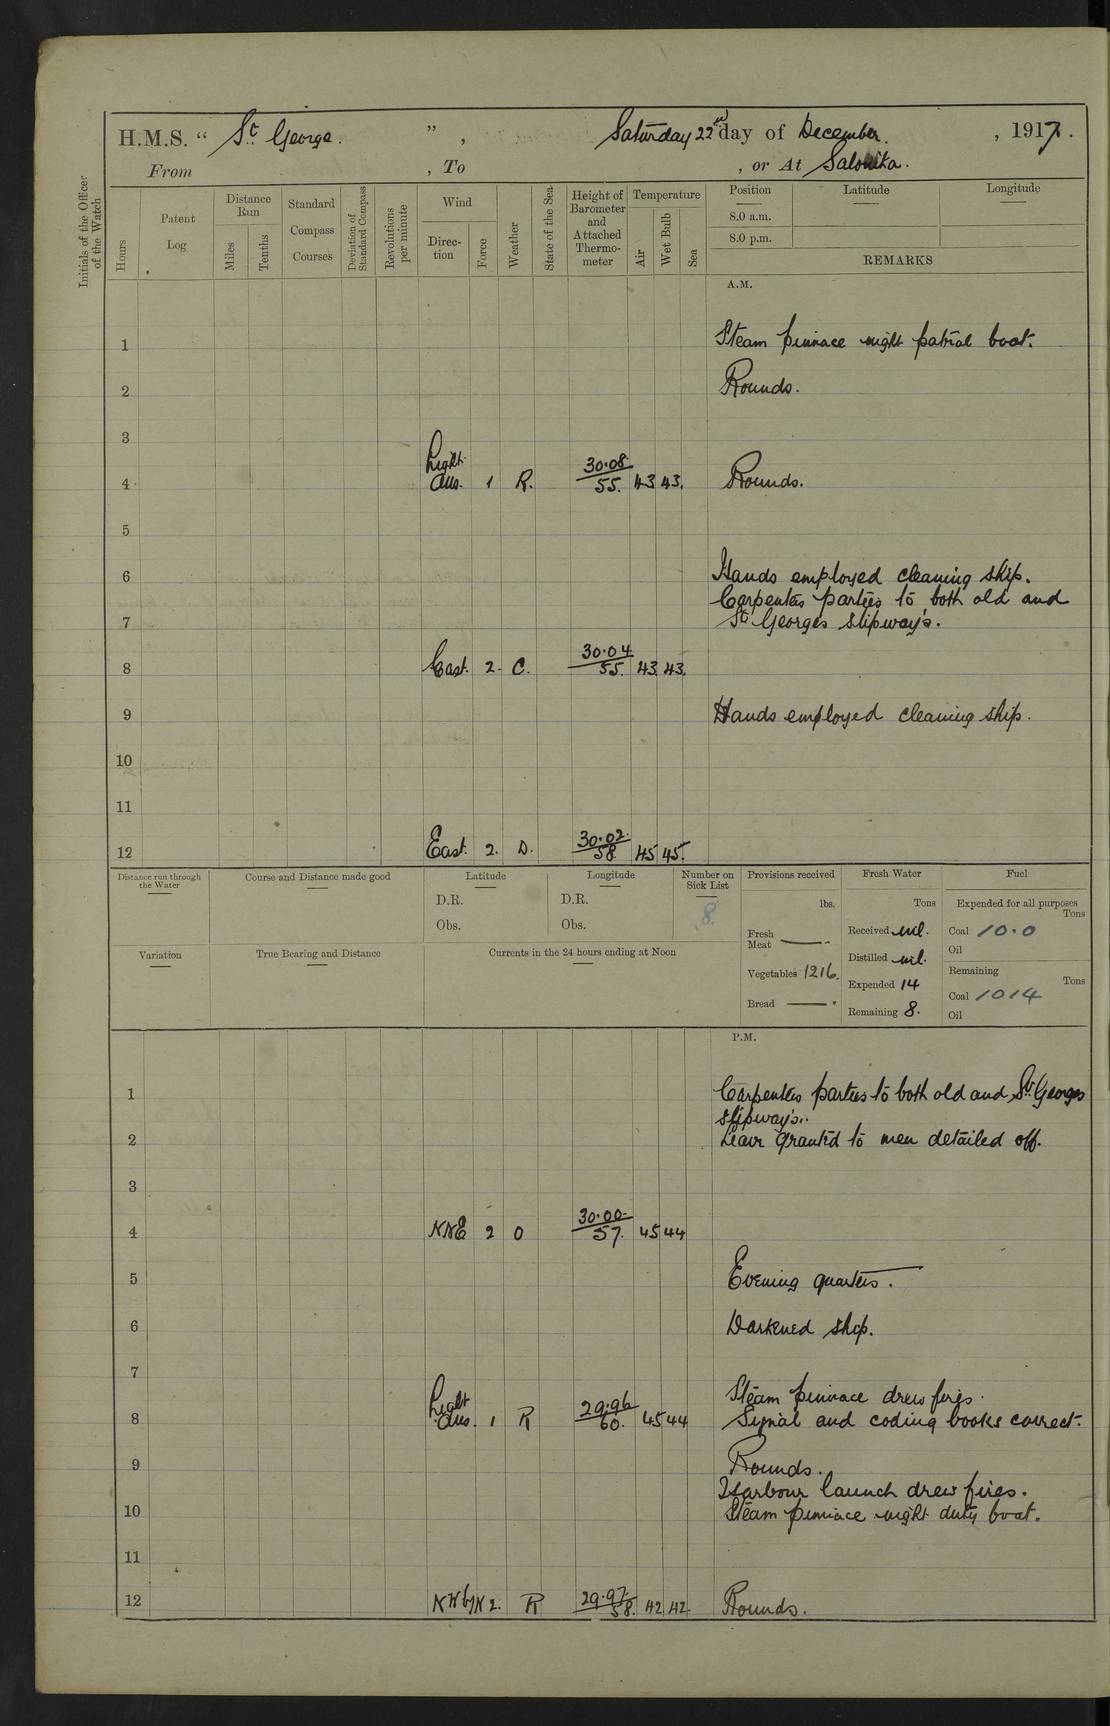 H.M.S. “ St. George. ”, Saturday 22nd day of December. , 1917.
From , To , or At Salonika.
Initials of the Officer of the Watch
Hours
Patent Log
Distance Run
Miles
Tenths
Standard Compass Courses
Deviation of Standard Compass
Revolutions per minute
Wind
Direction
Force
Weather
State of the Sea
Height of Barometer and Attached Thermometer
Temperature
Air
Wet Bulb
Sea
Position Latitude Longitude
8.0 a.m.
8.0 p.m.
REMARKS
A.M.
1 Steam pinnace night patrol boat.
2 Rounds.
3
4 Light Airs. 1 R. 30.08 55. 43 43. Rounds.
5
6 Hands employed cleaning ship.
Carpenters parties to both old and
7 St Georges slipway's.
8 East. 2. C. 30.04 55. 43 43.
9 Hands employed cleaning ship.
10
11
12 East. 2. D. 30.02. 58. 45 45.
Distance run through the Water
Course and Distance made good
Latitude
D.R.
Obs.
Longitude
D.R.
Obs.
Number on Sick List
8.
Variation
True Bearing and Distance
Currents in the 24 hours ending at Noon
Provisions received
lbs.
Fresh Meat —.
Vegetables 1216.
Bread —.
Fresh Water
Tons
Received nil.
Distilled nil.
Expended 14
Remaining 8.
Fuel
Expended for all purposes
Tons
Coal 10.0
Oil
Remaining
Tons
Coal 1014
Oil
P.M.
1 Carpenters parties to both old and St. Georges
slipway's.
2 Leave granted to men detailed off.
3
4 NNE 2 O 30.00. 57. 45 44
5 Evening quarters.
6 Darkened ship.
7
Steam pinnace drew fires.
8 Light Airs. 1 R 29.96 60. 45 44 Signal and coding books correct.
9 Rounds.
Harbour launch drew fires.
10 Steam pinnace night duty boat.
11
12 NW by N 2. R 29.97. 58. 42 42. Rounds.